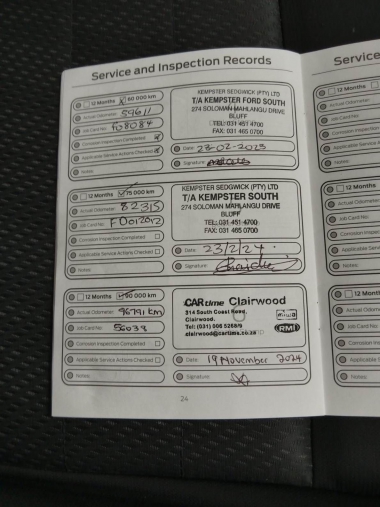 Service and Inspection Records
12 Months 60 000 km
Actual Odometer: 59611
Job Card No: F08084
Corrosion Inspection Completed
Applicable Service Actions Checked
Notes:
KEMPSTER SEDGWICK (PTY) LTD
T/A KEMPSTER FORD SOUTH
274 SOLOMAN MAHLANGU DRIVE
BLUFF
TEL: 031 451 4700
FAX: 031 465 0700
Date: 23-02-2023
Signature:
12 Months 75 000 km
Actual Odometer: 82315
Job Card No: FD012012
Corrosion Inspection Completed
Applicable Service Actions Checked
Notes:
KEMPSTER SEDGWICK (PTY) LTD
T/A KEMPSTER SOUTH
274 SOLOMAN MAHLANGU DRIVE
BLUFF
TEL: 031 451 4700
FAX: 031 465 0700
Date: 23/2/24
Signature:
12 Months 90 000 km
Actual Odometer: 96791 km
Job Card No: 56039
Corrosion Inspection Completed
Applicable Service Actions Checked
Notes:
CARtime Clairwood
314 South Coast Road,
Clairwood.
Tel: (031) 006 5268/9
clairwood@cartime.co.za
RMI
Date: 19 November 2024
Signature:
24
Service
12 Mont
Actual Odome
Job Card No:
Corrosion
Applicable
Notes:
12 Mo
Actual Odo
Job Card
Corrosion
Applicabl
Notes:
12 M
Actual O
Job Car
Corrosi
Applic
Notes